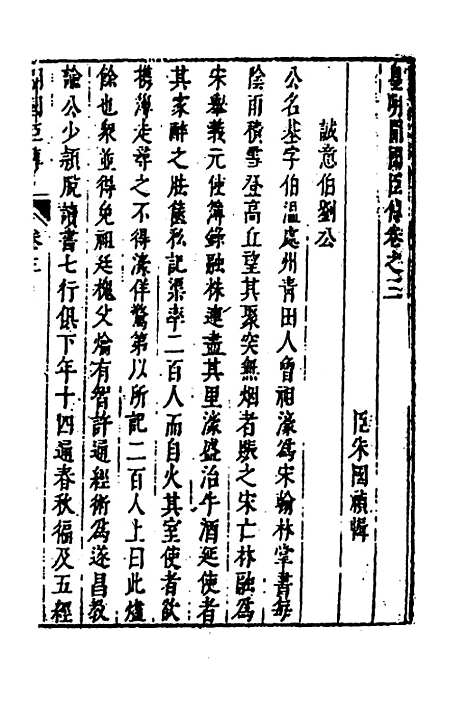 皇明開國臣傳卷之二
臣朱國禎輯
誠意伯劉公
公名基字伯溫處州青田人曾祖濠為宋翰林掌書每
陰雨積雪登高丘望其聚突無烟者賑之宋亡林融為
宋舉義元使簿錄融株連盡其里濠盛治牛酒延使者
其家醉之胠篋私記渠率二百人而自火其室使者欲
搆簿走尋之不得濠佯驚第以所記二百人上曰此爐
餘也眾並得免祖廷槐父爚有智許通經術為遂昌教
諭公少穎脫讀書七行俱下年十四通春秋福及五經
開國臣傳
卷二